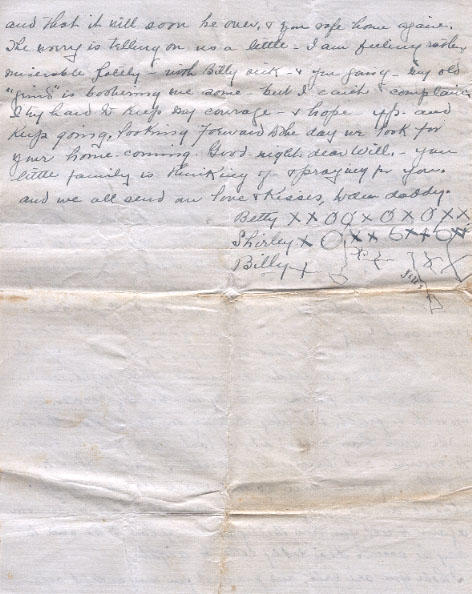 and that it will soon be over, & you safe home again.
The worry is telling on us a little - I am feeling rather
miserable lately - with Billy sick - & you gone - my old
"grind" is bothering me some - but I can't complain
I try hard to keep my courage - & hope up - and
keep going, looking forward to the day we look for
your home-coming. Good night, dear Will, - your
little family is thinking of & praying for you.
and we all send our love & kisses, to dear daddy.
Betty XXOOXOXOXX
Shirley XOXXOXXOX
Billy X